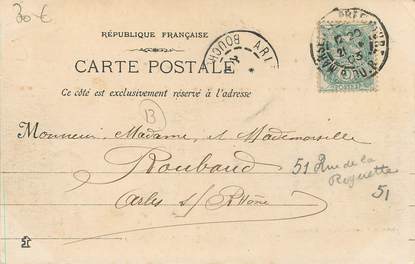 20 €
RÉPUBLIQUE FRANÇAISE
CARTE POSTALE
Ce côté est exclusivement réservé à l'adresse
B
Monsieur, Madame, et Mademoiselle
Roubaud
51 Rue de la
Roquette
51
Arles s/ Rhône